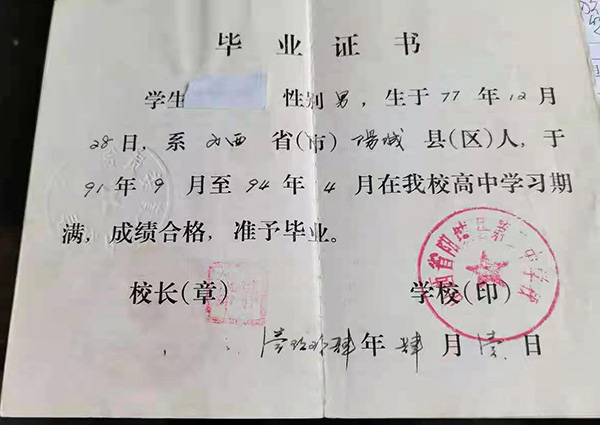 毕业证书
学生 性别男，生于77年12月
28日，系山西省(市)阳城县(区)人，于
91年9月至94年4月在我校高中学习期
满，成绩合格，准予毕业。
校长(章) 学校(印)
壹玖玖肆年肆月壹日